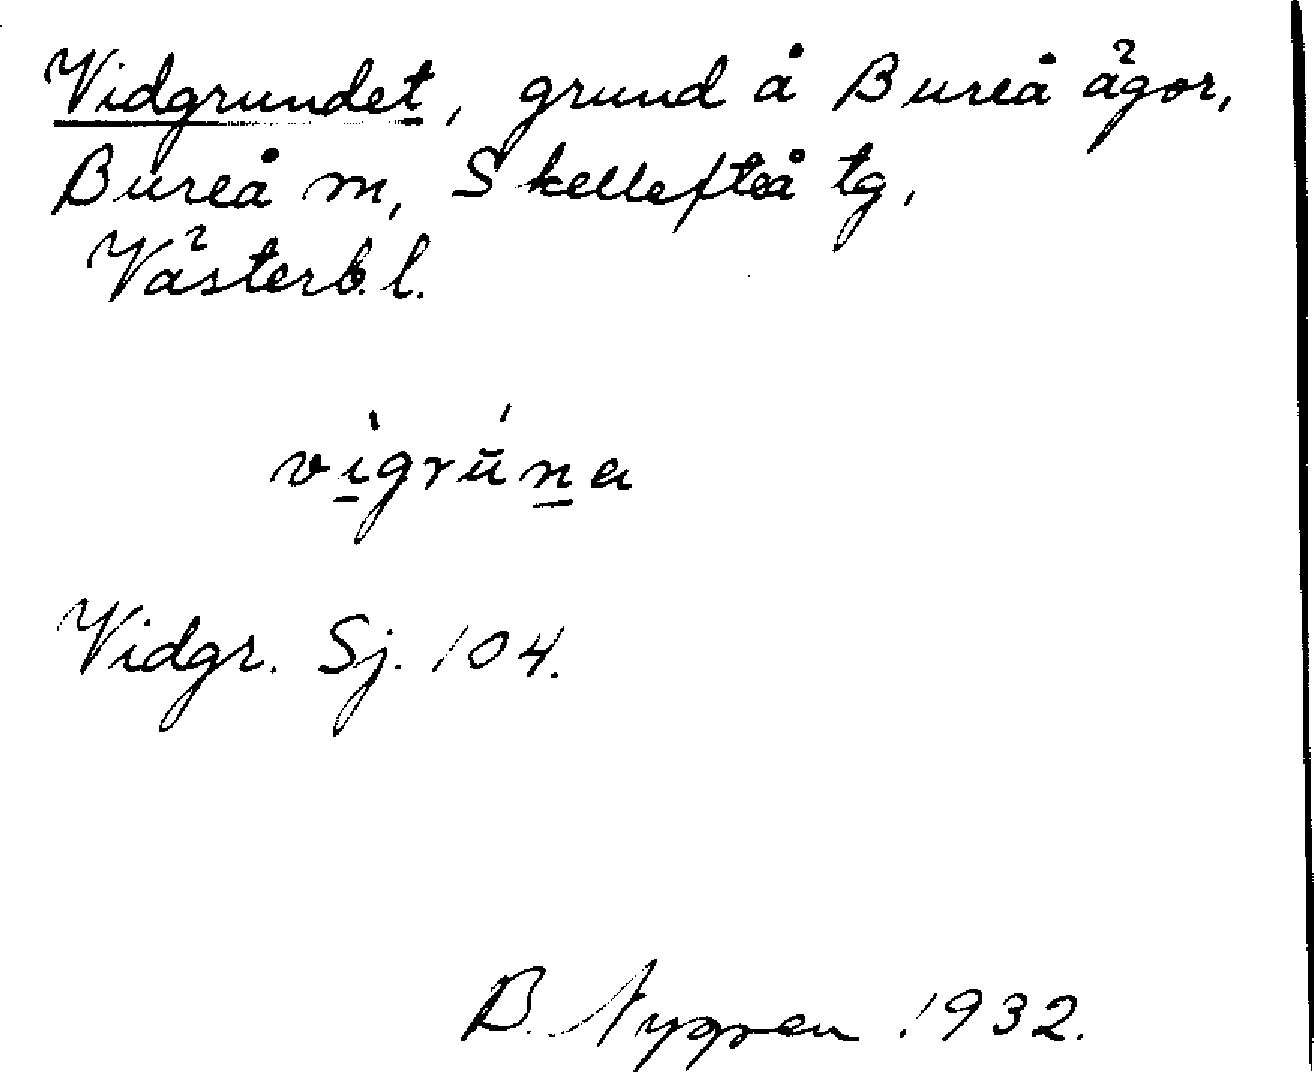 Vidgrundet, grund å Bureå ägor,
Bureå m, Skellefteå tg,
Västerb. l.
vìgrúna
Vidgr. Sj. 104.
B. Nygren 1932.